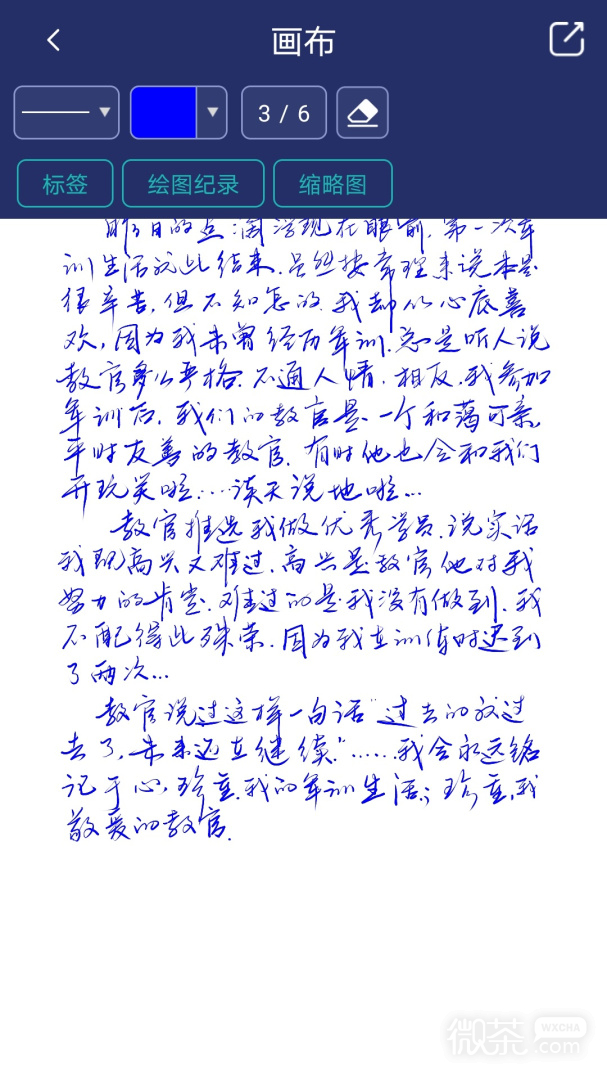 画布
3 / 6
标签
绘图纪录
缩略图
昨日的点滴浮现在眼前.第一次军
训生活就此结束.虽然按常理来说本是
很辛苦,但不知怎的.我却从心底喜
欢,因为我未曾经历军训.总是听人说
教官多么严格.不通人情.相反.我参加
军训后.我们的教官是一个和蔼可亲,
平时友善的教官.有时他也会和我们
开玩笑啦...谈天说地啦...
教官推选我做优秀学员.说实话
我既高兴又难过.高兴是教官他对我
努力的肯定.难过的是我没有做到.我
不配得此殊荣.因为我在训练时迟到
了两次...
教官说过这样一句话"过去的放过
去了,未来还在继续."......我会永远铭
记于心,珍重.我的军训生活;珍重,我
敬爱的教官.
微茶
WXCHA
.com